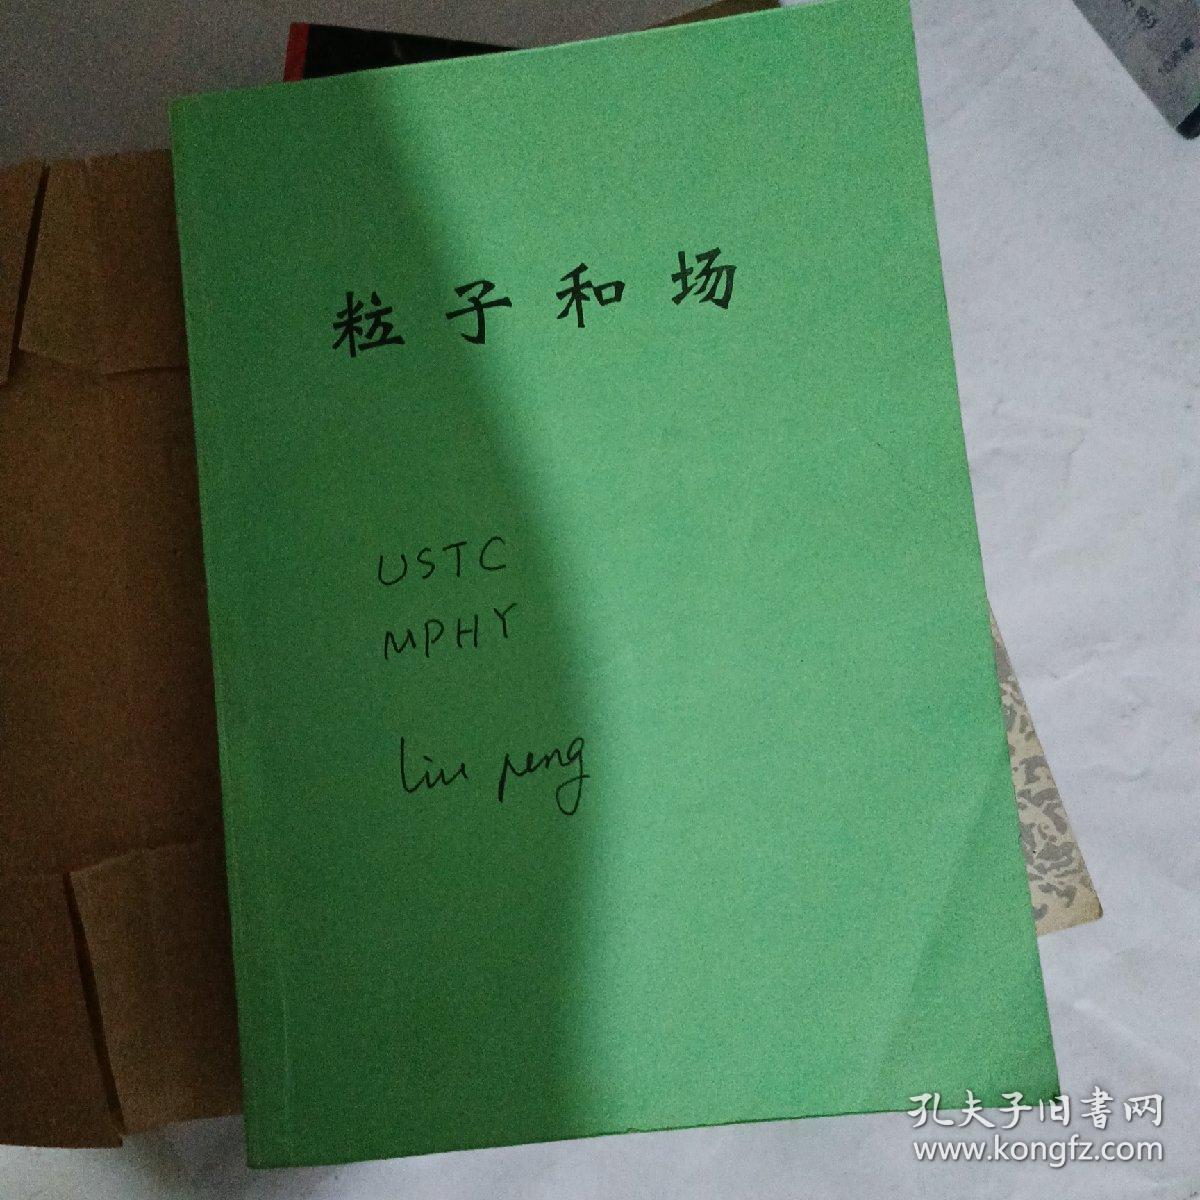 粒子和场
USTC
MPHY
liu peng
孔夫子旧書网
www.kongfz.com